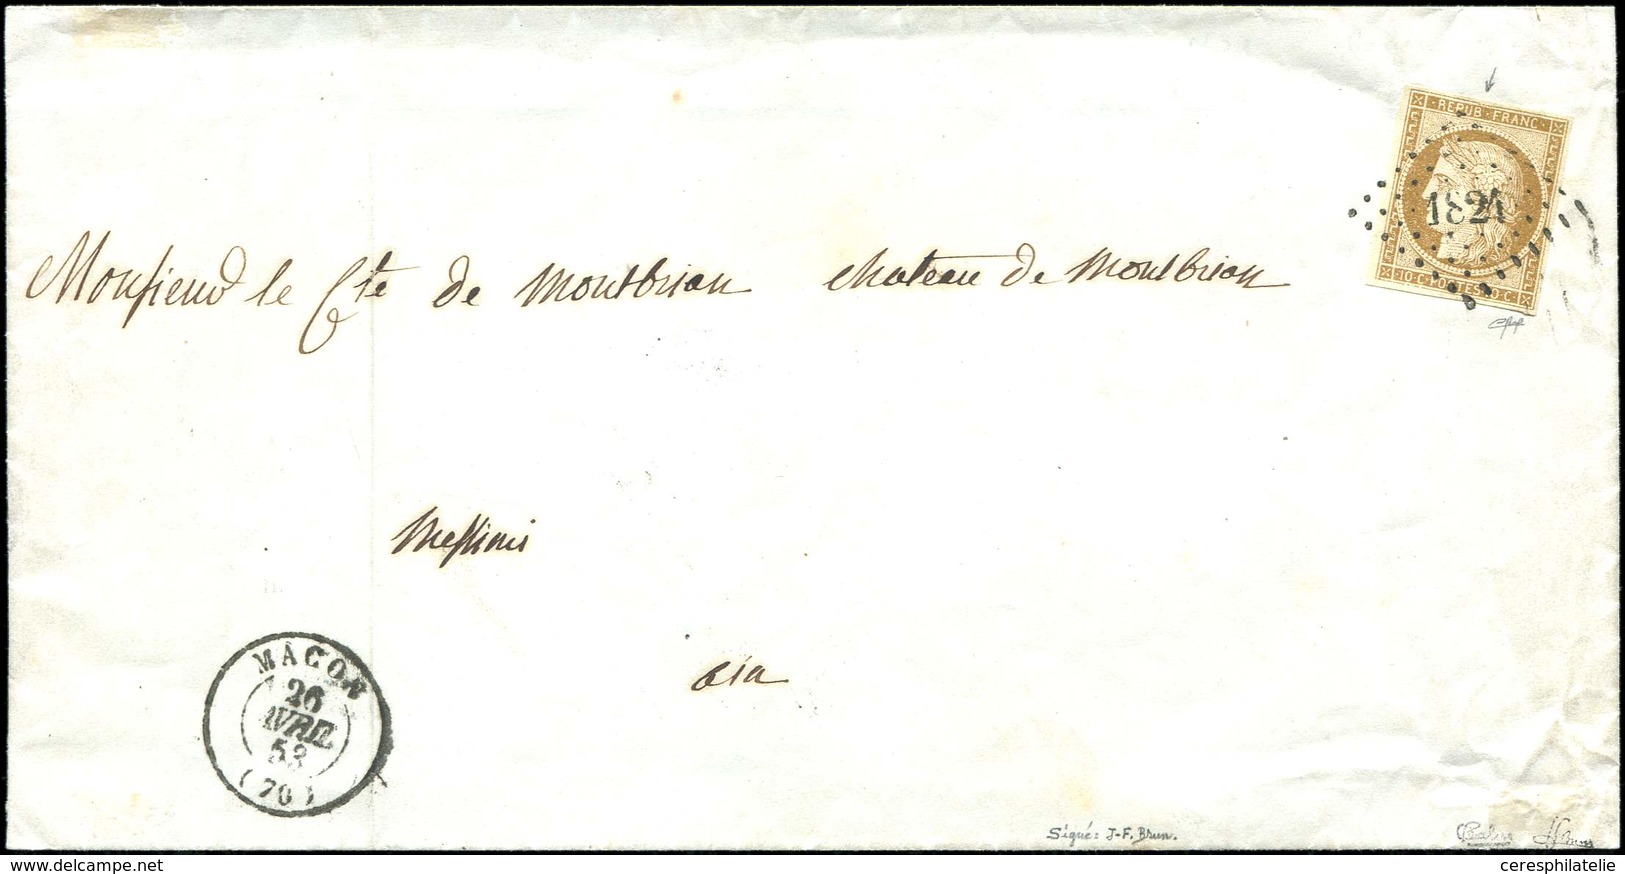 REPUB·FRANC·
1821
10·C·POSTES·10·C·
Monsieur le Cte de Montbrian chateau de Montbrian
Messimi
ain
MÂCON
26
AVRIL
53
(70)
Signé: J-F. Brun.
Calves
www.delcampe.net
ceresphilatelie